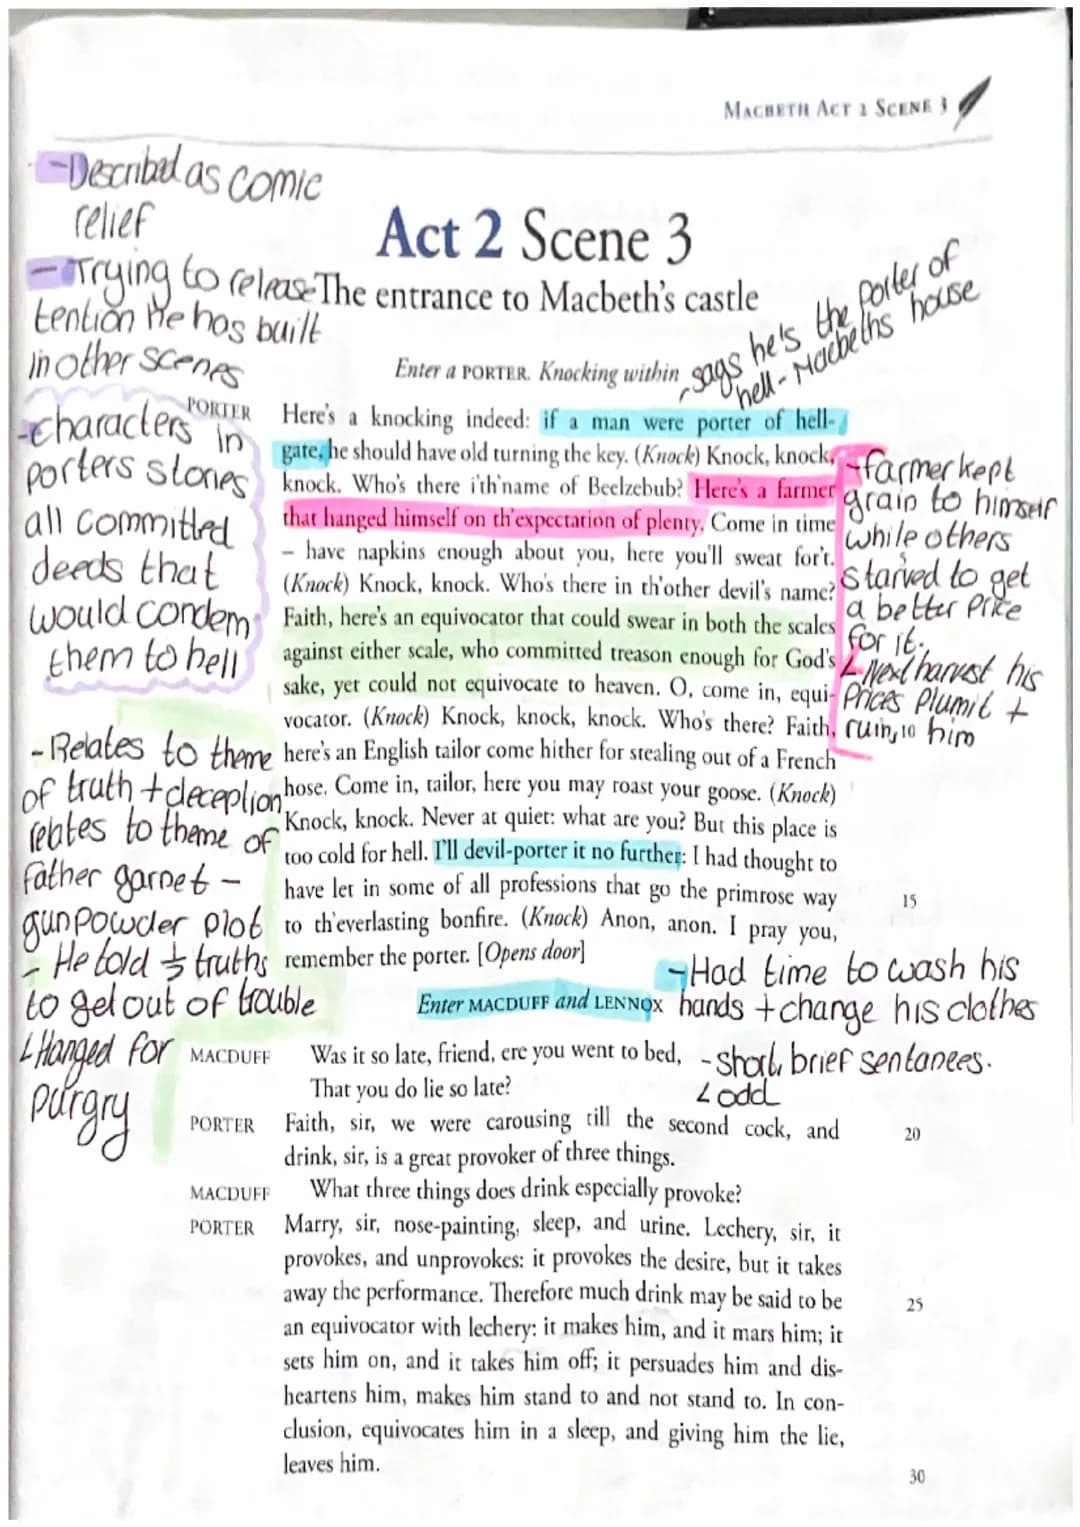 MACBETH ACT 2 SCENE 3
-Described as comic
relief
- Trying to release
tention he has built
in other scenes
-characters in
porters stories
all committed
deeds that
would condem
them to hell
- Relates to theme
of truth + deception
relates to theme of
father garnet -
gunpowder plot
- He told ½ truths
to get out of trouble
↳ Hanged for
purgry
Act 2 Scene 3
The entrance to Macbeth's castle
- says he's the porter of
hell - Macbeths house
Enter a PORTER. Knocking within
PORTER Here's a knocking indeed: if a man were porter of hell-
gate, he should have old turning the key. (Knock) Knock, knock,
knock. Who's there i'th'name of Beelzebub? Here's a farmer
that hanged himself on th'expectation of plenty. Come in time
– have napkins enough about you, here you'll sweat for't.
(Knock) Knock, knock. Who's there in th'other devil's name?
Faith, here's an equivocator that could swear in both the scales
against either scale, who committed treason enough for God's
sake, yet could not equivocate to heaven. O, come in, equi-
vocator. (Knock) Knock, knock, knock. Who's there? Faith, 10
here's an English tailor come hither for stealing out of a French
hose. Come in, tailor, here you may roast your goose. (Knock)
Knock, knock. Never at quiet: what are you? But this place is
too cold for hell. I'll devil-porter it no further: I had thought to
have let in some of all professions that go the primrose way 15
to th'everlasting bonfire. (Knock) Anon, anon. I pray you,
remember the porter. [Opens door]
-farmer kept
grain to himself
while others
starved to get
a better Price
for it.
↳ Next harvest his
Prices Plumit +
ruin, him
Enter MACDUFF and LENNOX
-Had time to wash his
hands + change his clothes
MACDUFF Was it so late, friend, ere you went to bed,
That you do lie so late?
- short, brief sentanees.
↳ odd
PORTER Faith, sir, we were carousing till the second cock, and 20
drink, sir, is a great provoker of three things.
MACDUFF What three things does drink especially provoke?
PORTER Marry, sir, nose-painting, sleep, and urine. Lechery, sir, it
provokes, and unprovokes: it provokes the desire, but it takes
away the performance. Therefore much drink may be said to be 25
an equivocator with lechery: it makes him, and it mars him; it
sets him on, and it takes him off; it persuades him and dis-
heartens him, makes him stand to and not stand to. In con-
clusion, equivocates him in a sleep, and giving him the lie,
leaves him. 30